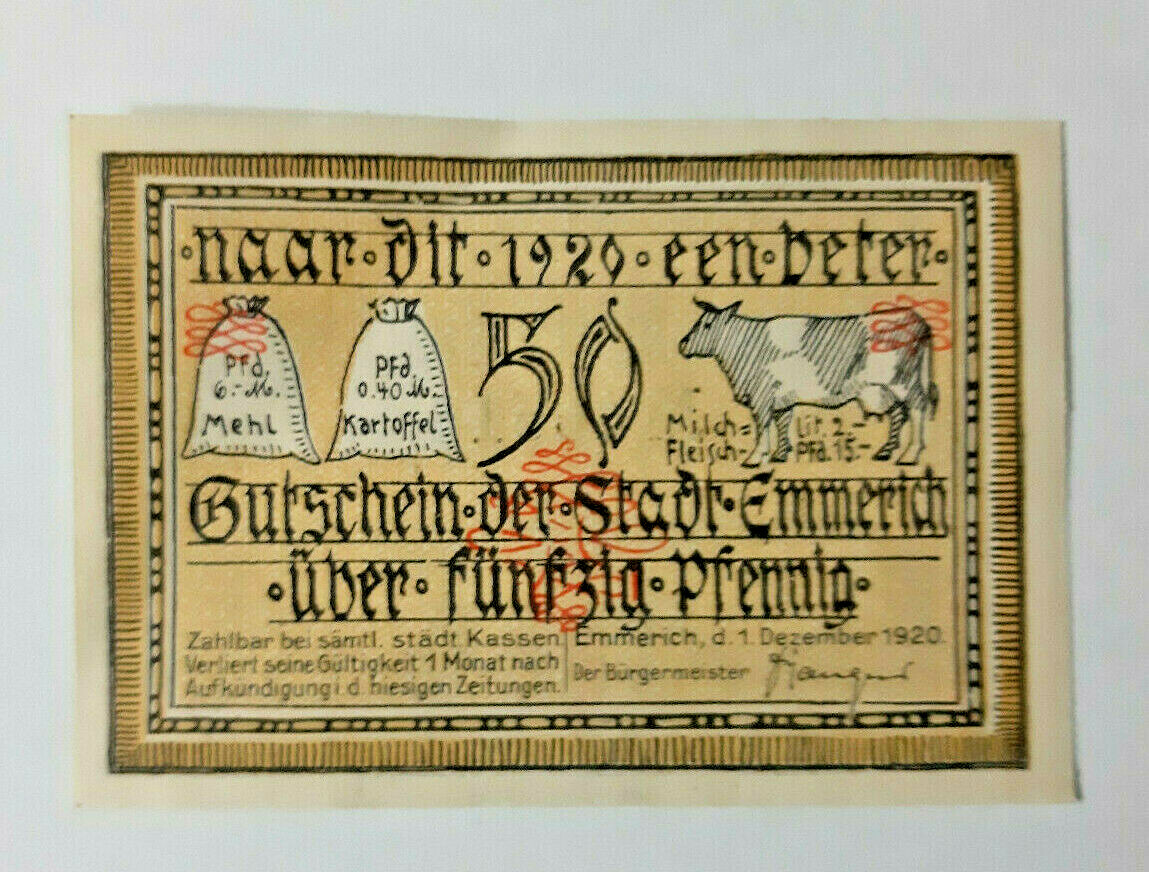 ·naar·dit·1920·een·beter·
Pfd.
6.-M.
Mehl
Pfd.
0.40 M.
Kartoffel
50
Milch= Lit. 2.-
Fleisch- Pfd. 15.-
Gutschein·der·Stadt·Emmerich
·über·fünfzig·Pfennig·
Zahlbar bei sämtl. städt Kassen.
Verliert seine Gültigkeit 1 Monat nach
Aufkündigung i. d. hiesigen Zeitungen.
Emmerich, d. 1. Dezember 1920.
Der Bürgermeister